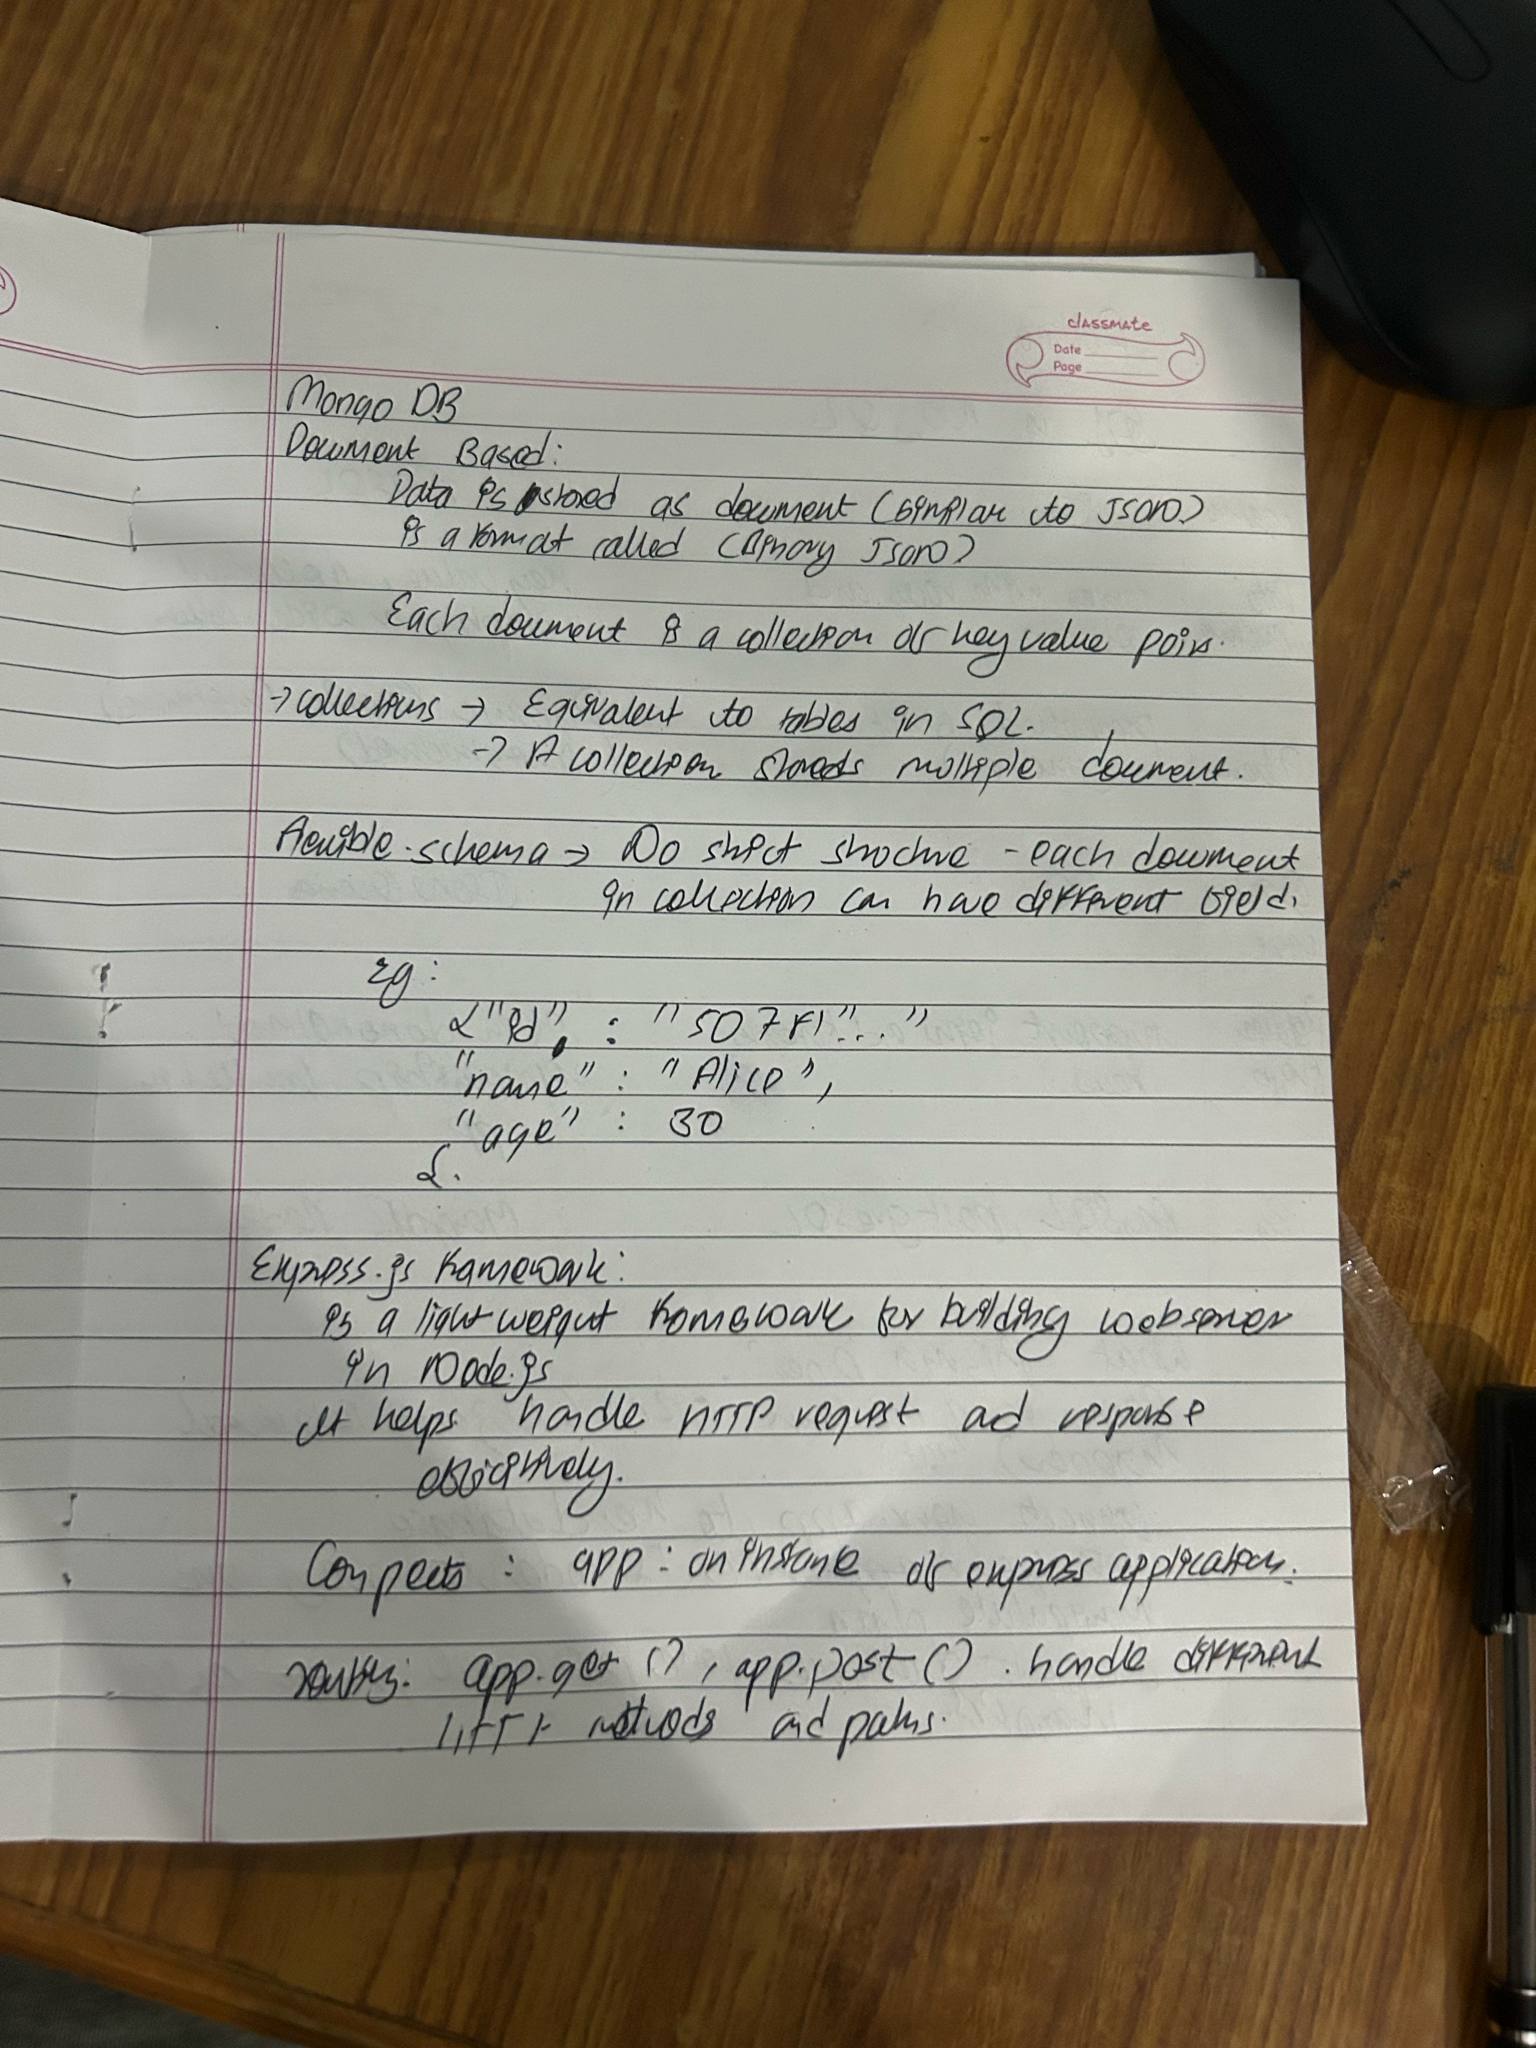 classmate
Date
Page
Mongo DB
Document Based:
Data is stored as document (similar to JSON)
is a format called (Binary JSON)
Each document is a collection of key value pair.
→ collections → Equivalent to tables in SQL.
→ A collection stores multiple document.
Flexible schema → No strict structure - each document
in collection can have different field.
Eg:
{"id", : "507f1"..."
"name" : "Alice",
"age" : 30
{.
Express.js framework:
is a light weight framework for building webserver
in Node.js
It helps handle HTTP request and response
efficiently.
: app : an instance of express application.
routing: app.get (), app.post (). handle different
HTTP methods and paths.